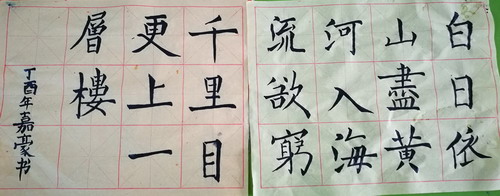 白日依
山盡黃
河入海
流欲窮
千里目
更上一
層樓
丁酉年嘉豪书